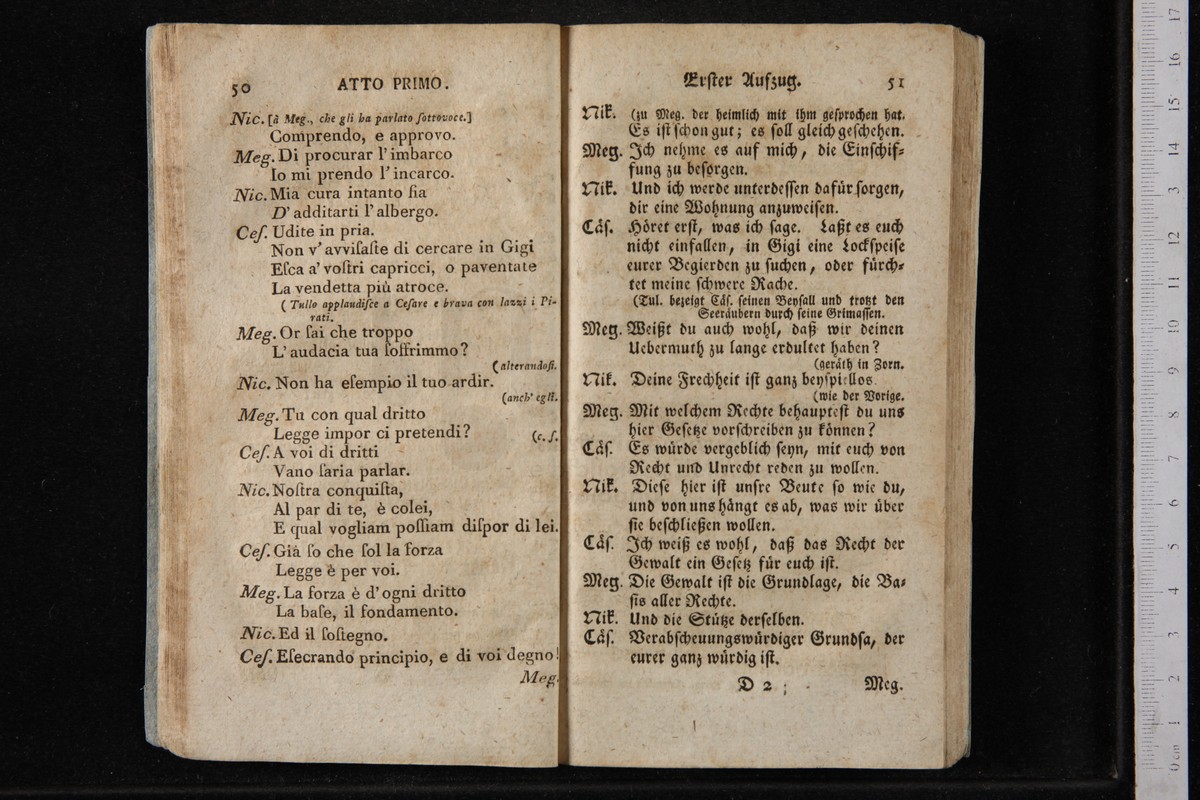 50 ATTO PRIMO.
Nic. [à Meg., che gli ha parlato ſottovoce.]
Comprendo, e approvo.
Meg. Di procurar l'imbarco
Io mi prendo l'incarco.
Nic. Mia cura intanto ſia
D'additarti l'albergo.
Ceſ. Udite in pria.
Non v'avviſaſte di cercare in Gigi
Eſca a' voſtri capricci, o paventate
La vendetta più atroce.
( Tullo applaudiſce a Ceſare e brava con lazzi i Pi-
rati.
Meg. Or ſai che troppo
L'audacia tua ſoffrimmo?
( alterandoſi.
Nic. Non ha eſempio il tuo ardir.
(anch' egli.
Meg. Tu con qual dritto
Legge impor ci pretendi?
(c. ſ.
Ceſ. A voi di dritti
Vano ſaria parlar.
Nic. Noſtra conquiſta,
Al par di te, è colei,
E qual vogliam poſſiam diſpor di lei.
Ceſ. Già ſo che ſol la forza
Legge è per voi.
Meg. La forza è d'ogni dritto
La baſe, il fondamento.
Nic. Ed il ſoſtegno.
Ceſ. Eſecrando principio, e di voi degno!
Meg.
Erſter Aufzug. 51
Nik. (zu Meg. der heimlich mit ihm geſprochen hat.
Es iſt ſchon gut; es ſoll gleich geſchehen.
Meg. Ich nehme es auf mich, die Einſchif-
fung zu beſorgen.
Nik. Und ich werde unterdeſſen dafür ſorgen,
dir eine Wohnung anzuweiſen.
Cäſ. Höret erſt, was ich ſage. Laßt es euch
nicht einfallen, in Gigi eine Lockſpeiſe
eurer Begierden zu ſuchen, oder fürch-
tet meine ſchwere Rache.
(Tul. bezeigt Cäſ. ſeinen Beyfall und trotzt den
Seeräubern durch ſeine Grimaſſen.
Meg. Weißt du auch wohl, daß wir deinen
Uebermuth zu lange erduldet haben?
(geräth in Zorn.
Nik. Deine Frechheit iſt ganz beyſpiellos
(wie der Vorige.
Meg. Mit welchem Rechte behaupteſt du uns
hier Geſetze vorſchreiben zu können?
Cäſ. Es würde vergeblich ſeyn, mit euch von
Recht und Unrecht reden zu wollen.
Nik. Dieſe hier iſt unſre Beute ſo wie du,
und von uns hängt es ab, was wir über
ſie beſchließen wollen.
Cäſ. Ich weiß es wohl, daß das Recht der
Gewalt ein Geſetz für euch iſt.
Meg. Die Gewalt iſt die Grundlage, die Ba-
ſis aller Rechte.
Nik. Und die Stütze derſelben.
Cäſ. Verabſcheuungswürdiger Grundſa, der
eurer ganz würdig iſt.
D 2 ; Meg.
0 cm 1 2 3 4 5 6 7 8 9 10 11 12 13 14 15 16 17